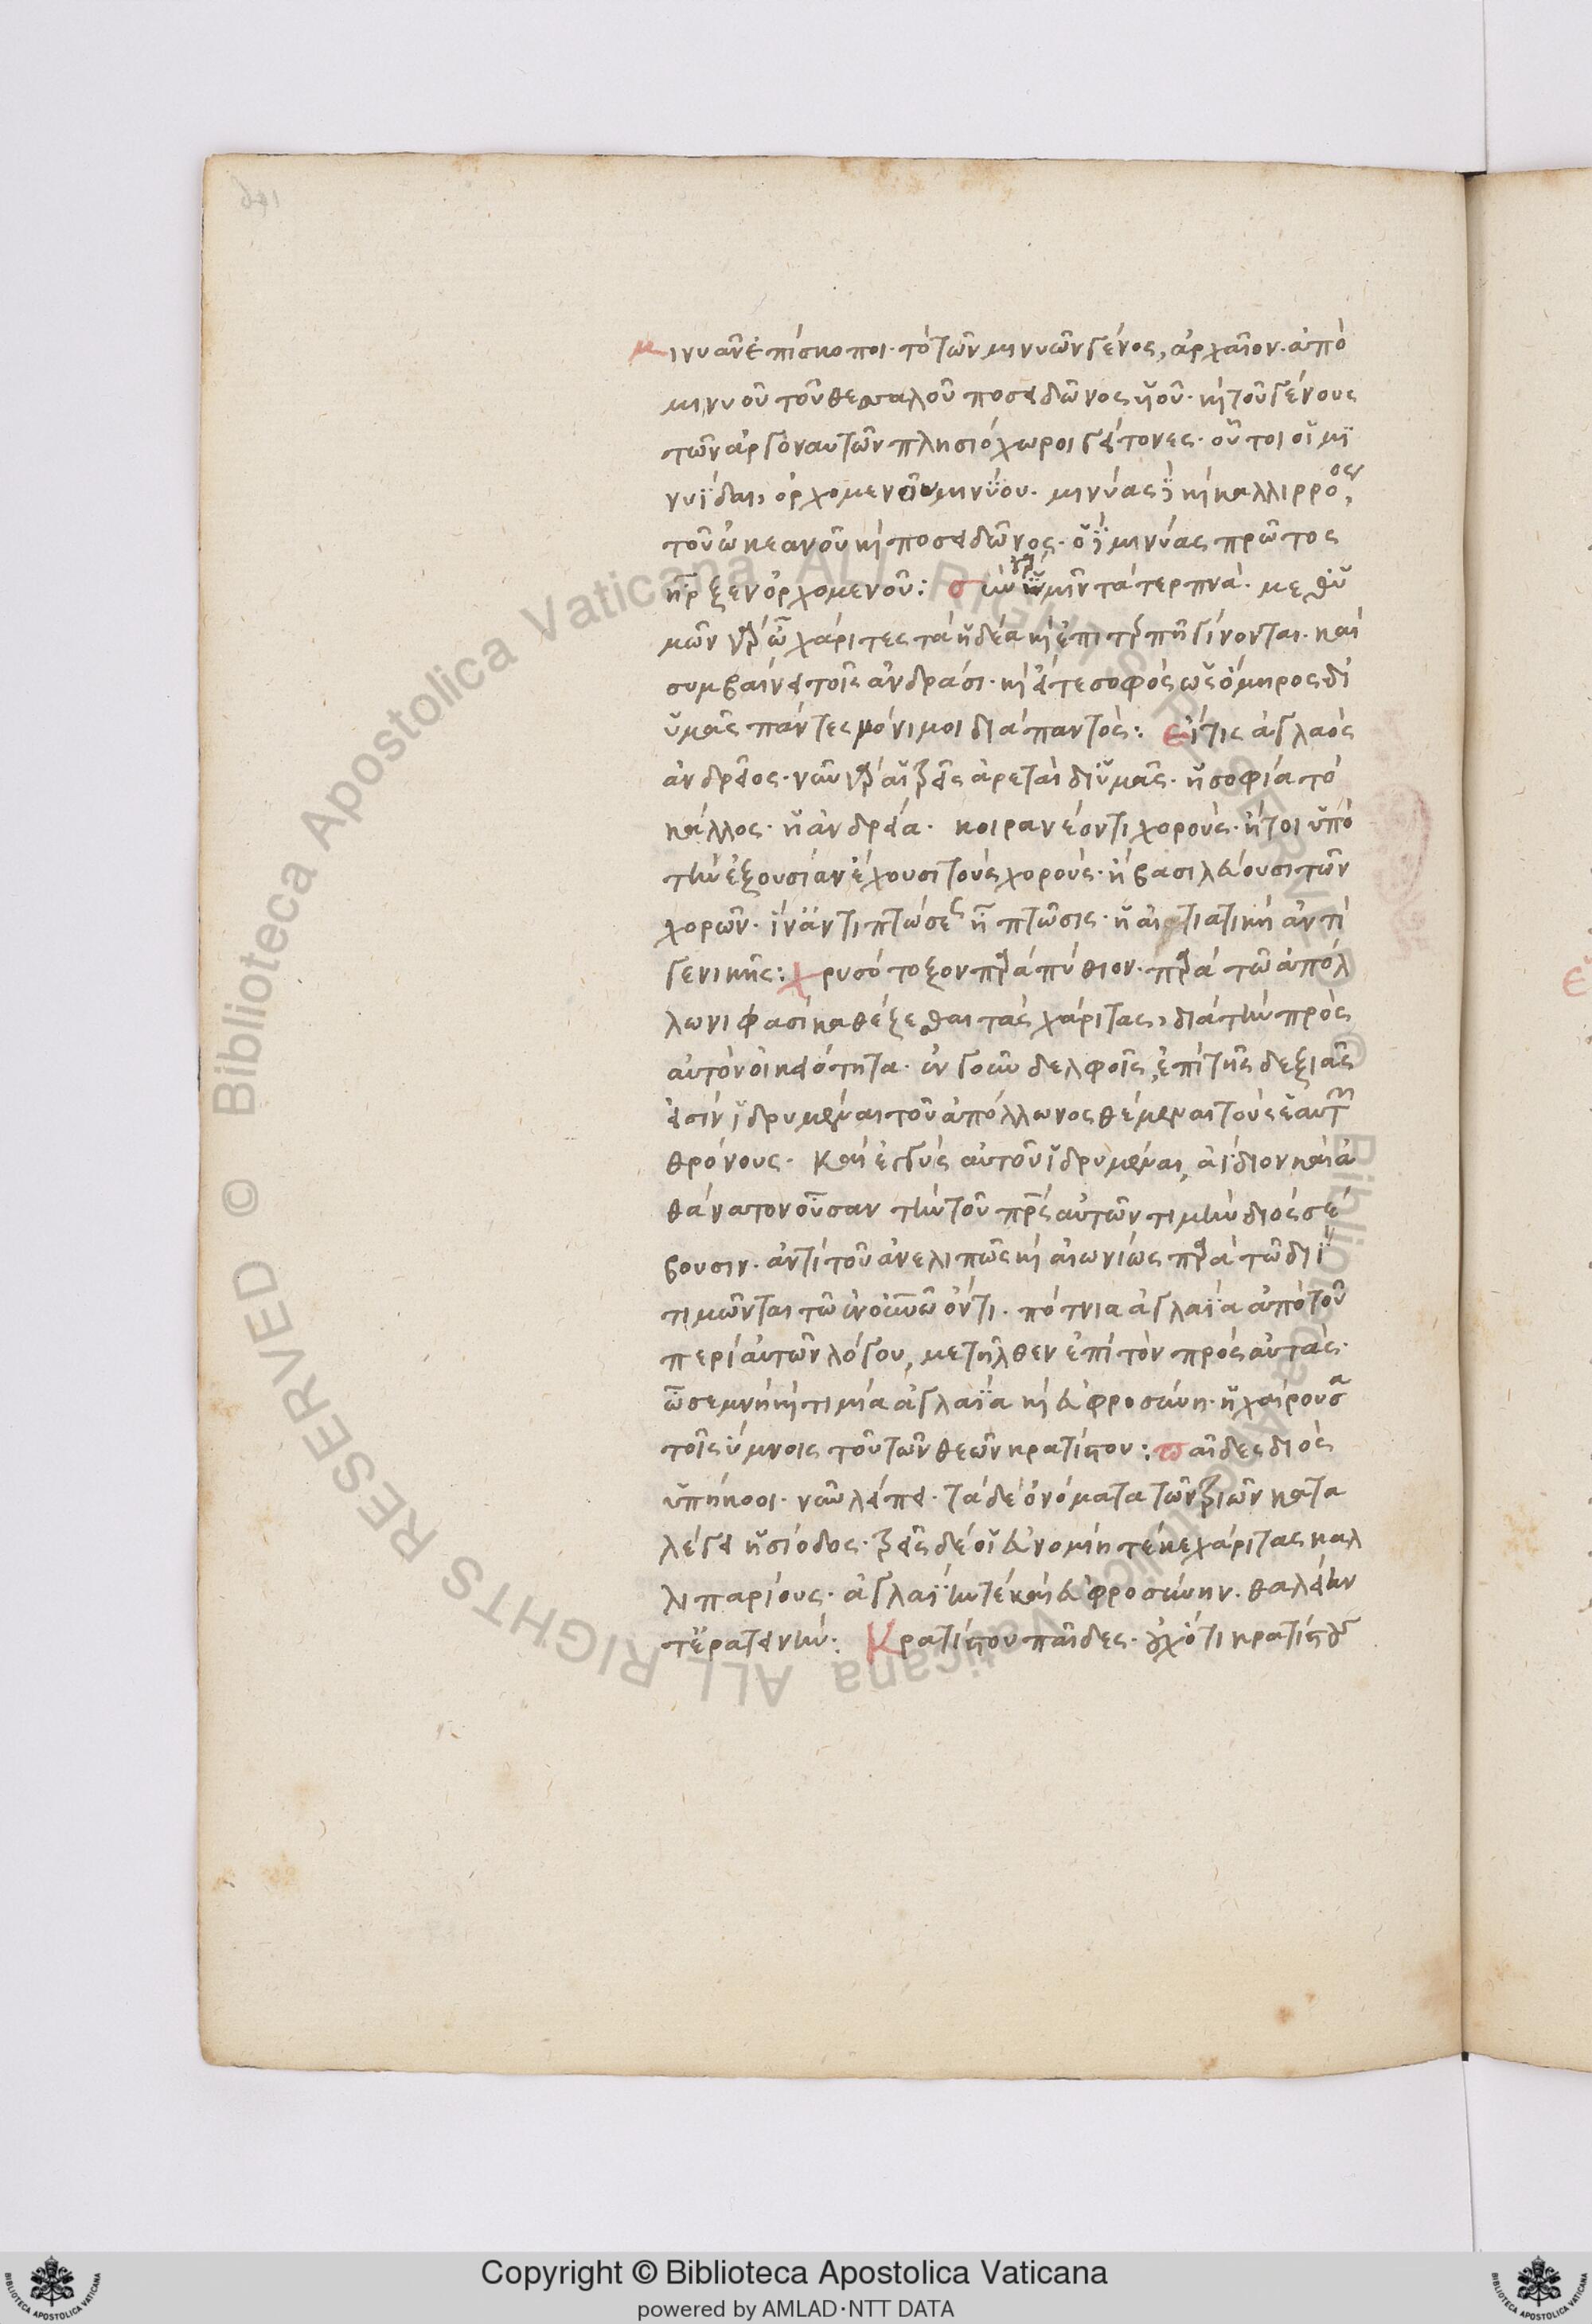 μινυᾶν ἐπίσκοποι· τὸ τῶν μινυῶν γένος, ἀρχαῖον· ἀπὸ
μινυοῦ τοῦ θεσσαλοῦ ποσειδῶνος υἱοῦ· κὶ τοῦ γένους
τῶν ἀργοναυτῶν πλησιόχωροι γείτονες· οὗτοι οἱ μι
νυΐδαι, ὀρχομενοῦ μινύου· μινύας κὶ καλλιρρόης
τοῦ ὠκεανοῦ κὶ ποσειδῶνος· ὁ μινύας πρῶτος
ἦρξεν ὀρχομενοῦ: σὺν γὰρ ὑμῖν τὰ τερπνὰ· μεθ' ὑ
μῶν γὰρ ὦ χάριτες τὰ ἡδέα κὶ ἐπιτερπῆ γίνονται· καὶ
συμβαίνει τοῖς ἀνδράσι· κὶ εἴτε σοφὸς ὡς ὅμηρος δι
ὑμᾶς πάντες μόνιμοι διὰ παντός: εἴ τις ἀγλαὸς
ἀνδρεῖος· νῦν γὰρ αἱ τρεῖς ἀρεταὶ δι' ὑμᾶς· ἡ σοφία τὸ
κάλλος· ἡ ἀνδρεία· κοιρανέοντι χοροὺς· ἤτοι ὑπὸ
τὴν ἐξουσίαν ἔχουσι τοὺς χοροὺς· ἢ βασιλεύουσι τῶν
χορῶν· ἵν' ἀντιπτώσεως ἡ πτῶσις· ἡ αἰτιατικὴ ἀντὶ
γενικῆς: χρυσότοξον παρὰ πύθιον· παρὰ τῶ ἀπόλ
λωνι φασὶ καθέζεσθαι τὰς χάριτας, διὰ τὴν πρὸς
αὐτὸν οἰκειότητα· ἐν γοῦν δελφοῖς, ἐπὶ τῆς δεξιᾶς
εἰσὶν ἱδρυμέναι τοῦ ἀπόλλωνος θέμεναι τοὺς ἑαυτῶν
θρόνους· καὶ ἐγγὺς αὐτοῦ ἱδρυμέναι, ἀΐδιον καὶ ἀ
θάνατον οὖσαν τὴν τοῦ πατρὸς αὐτῶν τιμὴν διὸς σέ
βουσιν· ἀντὶ τοῦ ἀνελιπῶς κὶ αἰωνίως παρὰ τῶ διῒ
τιμῶνται τῶ ἐν οὐρανῶ ὄντι· πότνια ἀγλαΐα ἀπὸ τοῦ
περὶ αὐτῶν λόγου, μετῆλθεν ἐπὶ τὸν πρὸς αὐτάς·
ὦ σεμνὴ κὶ τιμία ἀγλαΐα κὶ εὐφροσύνη· ἡ χαίρουσα
τοῖς ὕμνοις τοῦ τῶν θεῶν κρατίστου: παῖδες διὸς
ὑπήκοοι· νῦν λείπει· τὰ δὲ ὀνόματα τῶν τριῶν κατα
λέγει ἡσίοδος· τρεῖς δέ οἱ εὐνομίη τέκε χάριτας καλ
λιπαρίους· ἀγλαΐην τὲ καὶ εὐφροσύνην· θαλείην
τ' ἐρατεινήν: Κρατίστου παῖδες· οὐχ' ὅτι κρατίστου